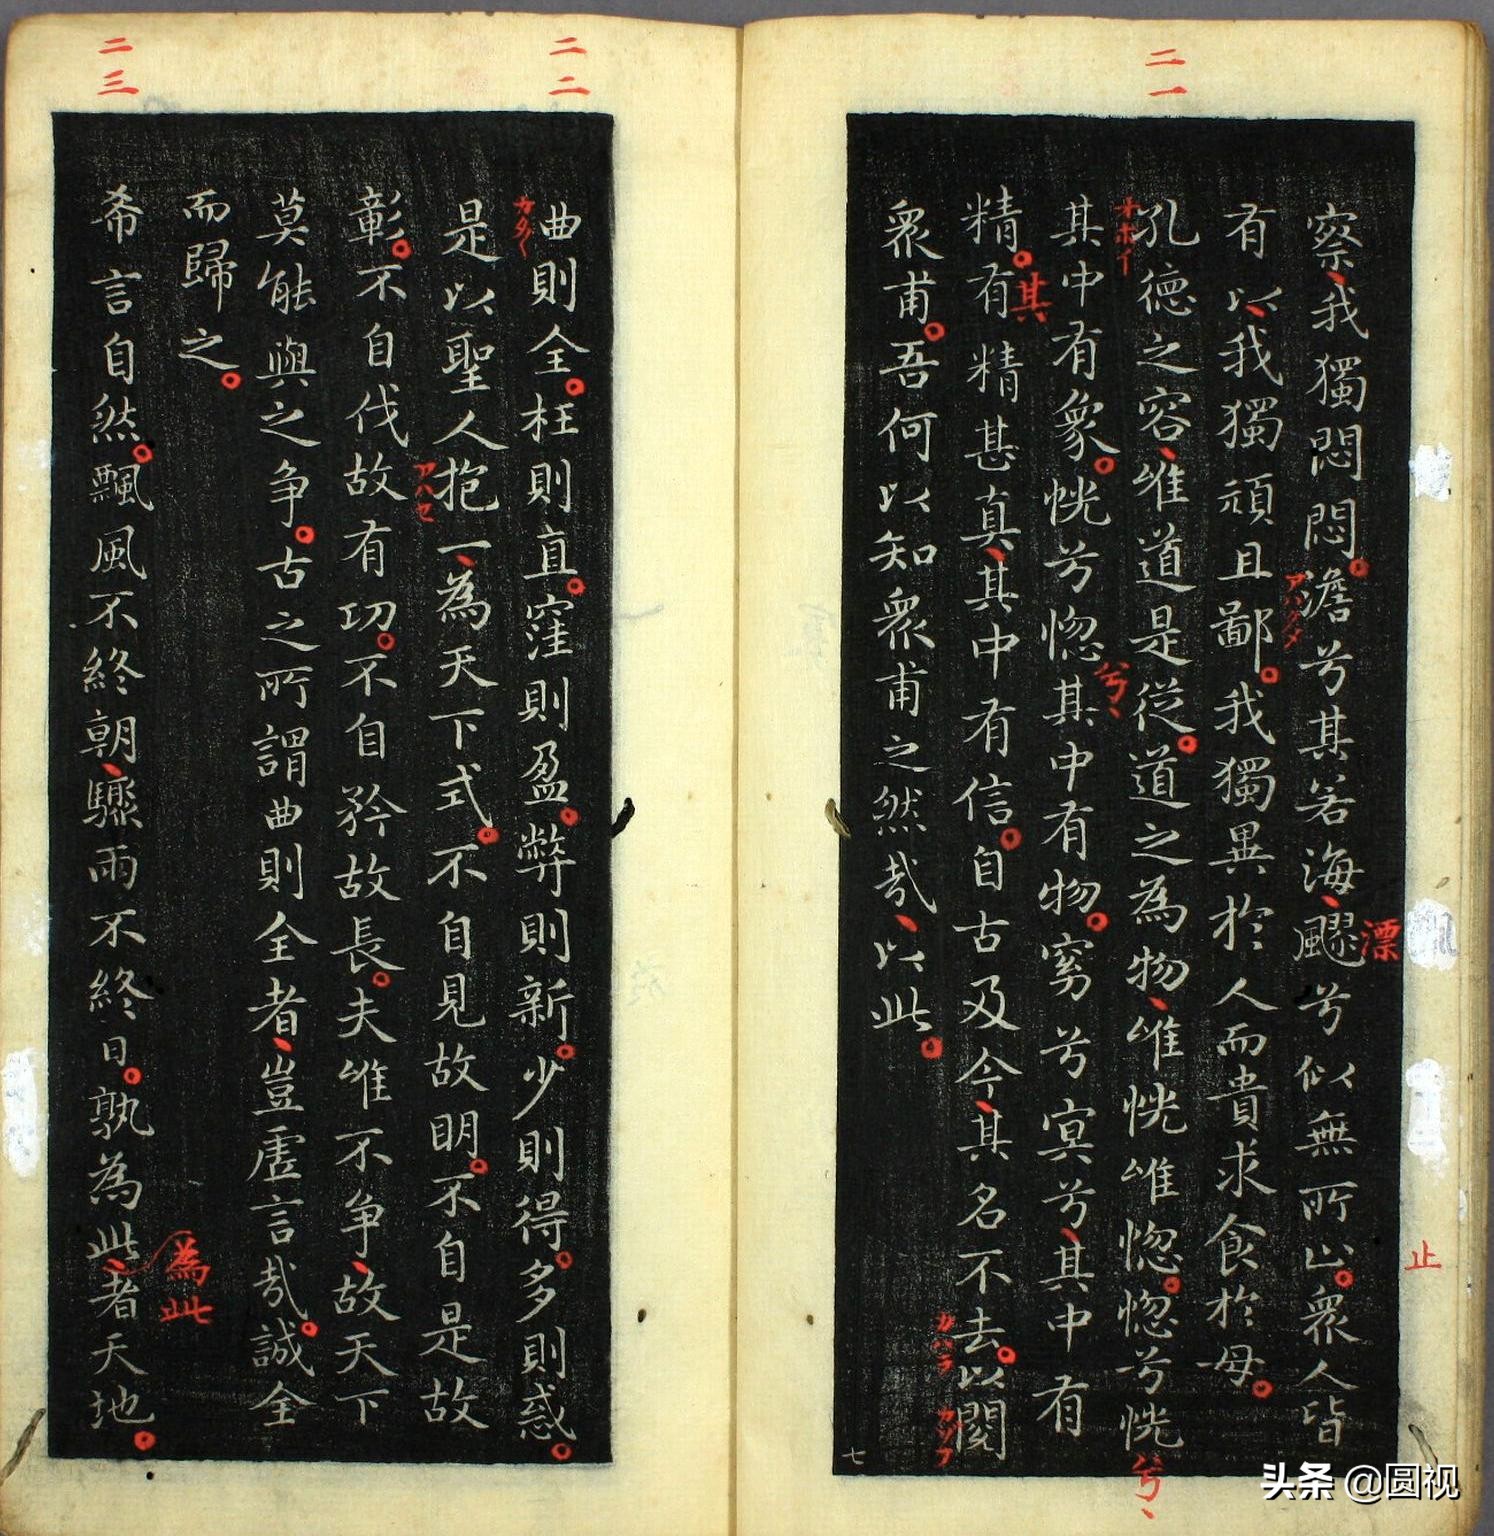 二一
察、我獨悶悶。澹兮其若海、飂兮似無所止。衆人皆
漂
止
有以、我獨頑且鄙。我獨異於人而貴求食於母。
孔德之容、唯道是從。道之為物、唯恍唯惚。惚兮恍
オホイ
兮、
其中有象。恍兮惚其中有物。窈兮冥兮、其中有
兮、
精。有精甚真、其中有信。自古及今、其名不去。以閱
其
衆甫。吾何以知衆甫之然哉、以此。
七
二二
曲則全。枉則直。窪則盈。弊則新。少則得。多則惑。
是以聖人抱一、為天下式。不自見故明。不自是故
アハセ
彰。不自伐故有功。不自矜故長。夫唯不争、故天下
莫能與之争。古之所謂曲則全者、豈虚言哉。誠全
而歸之。
二三
希言自然。飄風不終朝、驟雨不終日。孰為此、者天地。
為此
头条 @圆视